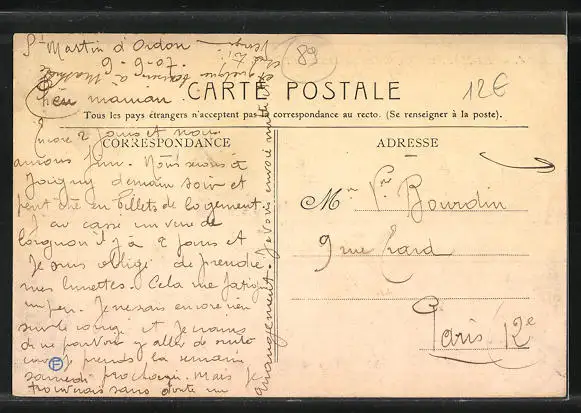 St Martin d'Ordon
89
12€
CARTE POSTALE
Tous les pays étrangers n'acceptent pas la correspondance au recto. (Se renseigner à la poste).
CORRESPONDANCE
ADRESSE
maman
Encore 2 jours et nous
aurons fini. Nous serons à
Joigny demain soir et
peut être en billets de logement.
J'ai cassé un verre de
lorgnon il y a 2 jours et
Je suis obligé de prendre
mes lunettes. Cela me fatigue
un peu. Je ne sais encore rien
sur le congé et Je crains
de ne pouvoir y aller de suite
Je prends la semaine
samedi prochain. Mais Je
trouverais sans doute un
arrangement. Je vous envoie mille
Mr Vr Bourdin
9 rue Erard
Paris 12e